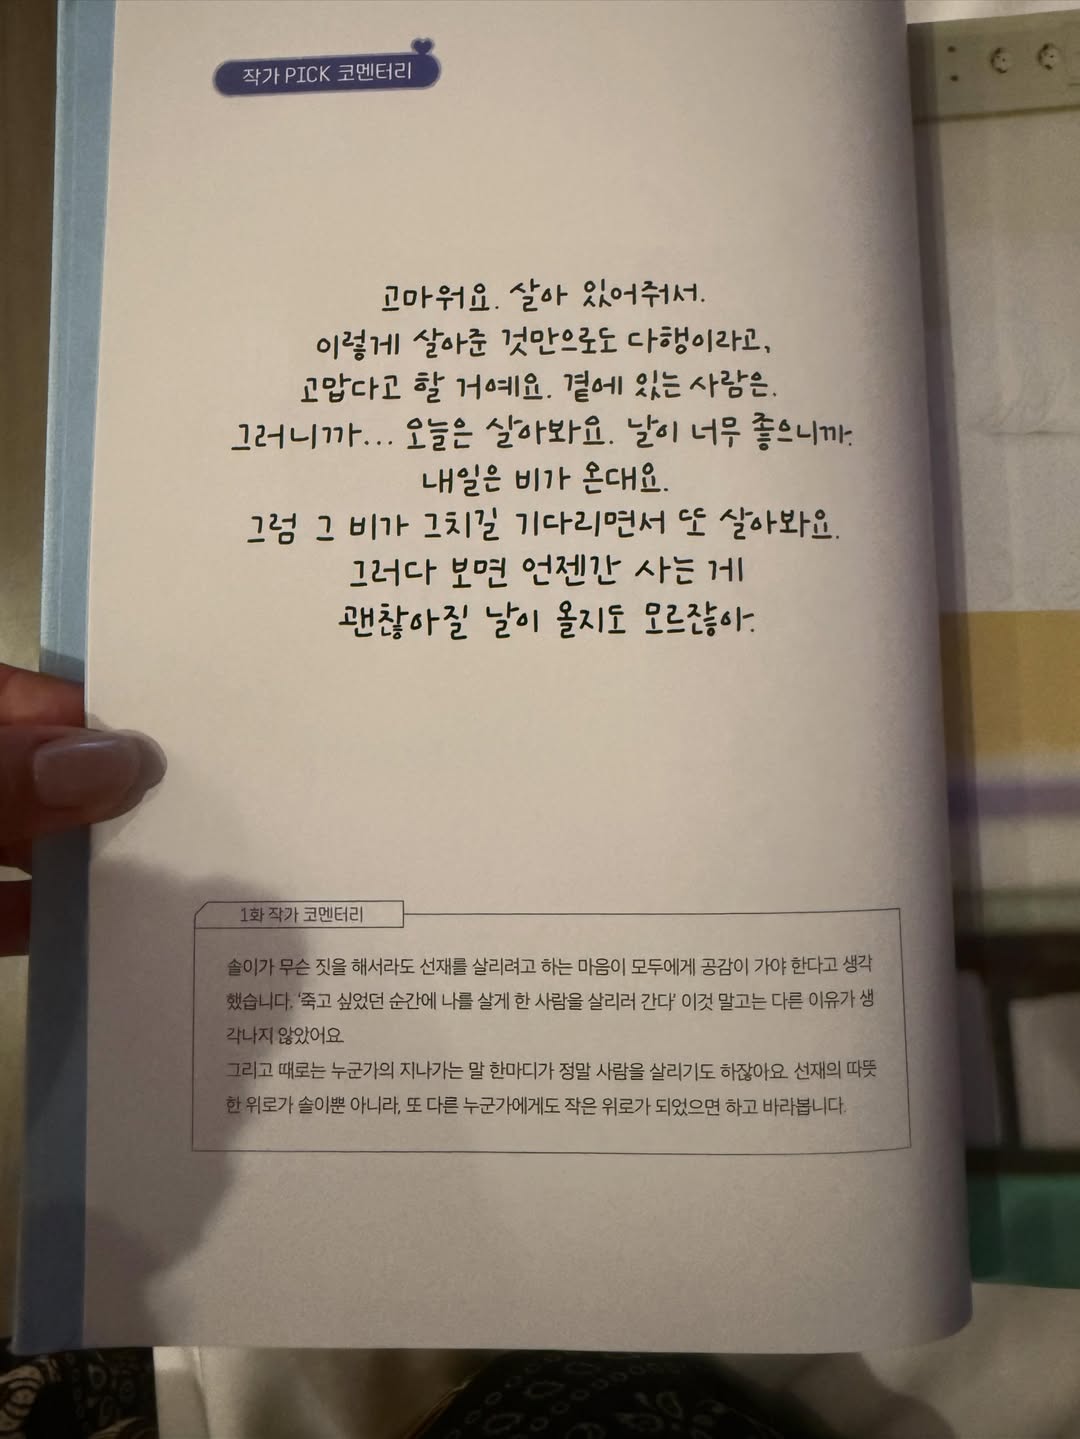 작가 PICK 코멘터리
고마워요. 살아 있어줘서.
이렇게 살아준 것만으로도 다행이라고,
고맙다고 할 거예요. 곁에 있는 사람은.
그러니까... 오늘은 살아봐요. 날이 너무 좋으니까.
내일은 비가 온대요.
그럼 그 비가 그치길 기다리면서 또 살아봐요.
그러다 보면 언젠간 사는 게
괜찮아질 날이 올지도 모르잖아.
1화 작가 코멘터리
솔이가 무슨 짓을 해서라도 선재를 살리려고 하는 마음이 모두에게 공감이 가야 한다고 생각
했습니다. '죽고 싶었던 순간에 나를 살게 한 사람을 살리러 간다' 이것 말고는 다른 이유가 생
각나지 않았어요.
그리고 때로는 누군가의 지나가는 말 한마디가 정말 사람을 살리기도 하잖아요. 선재의 따뜻
한 위로가 솔이뿐 아니라, 또 다른 누군가에게도 작은 위로가 되었으면 하고 바라봅니다.